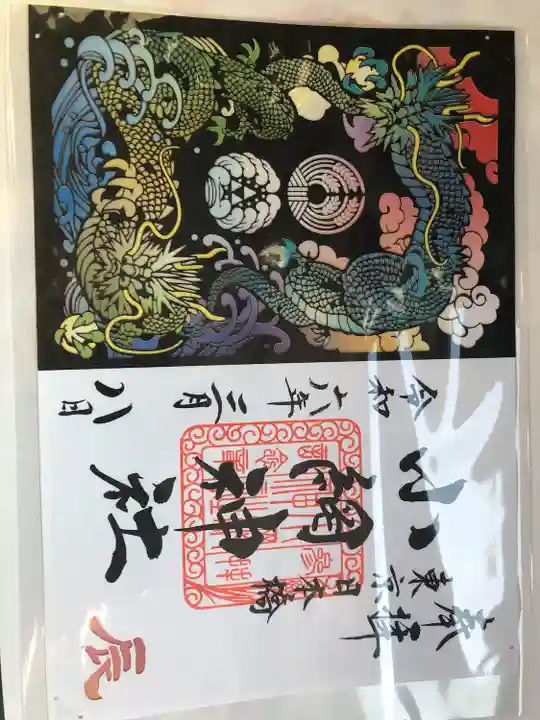 奉拝
東京 日本橋
小網神社
令和六年三月八日
辰